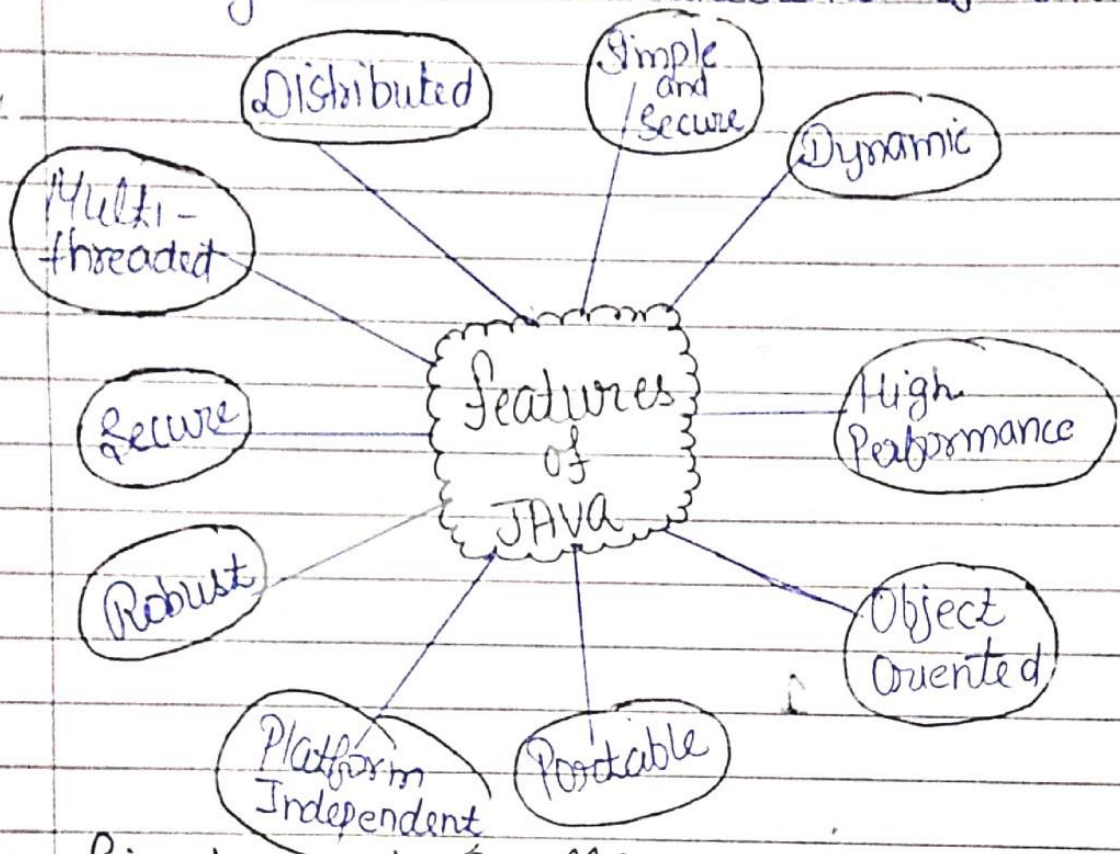 Distributed
Simple
and
Secure
Dynamic
Multi-
threaded
Features
of
JAVA
High
Performance
Secure
Robust
Object
Oriented
Platform
Independent
Portable